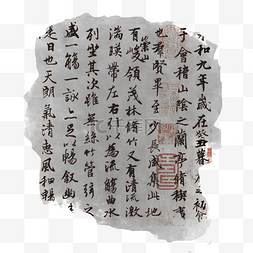 和九年歲在癸丑暮初
于會稽山陰之蘭亭脩稧
也群賢畢至少長咸集此地
有崇山峻領茂林脩竹又有清流激
湍暎帶左右引以為流觴曲水
列坐其次雖無絲竹管弦之
盛一觴一詠亦足以暢敘幽
是日也天朗氣清惠風和暢